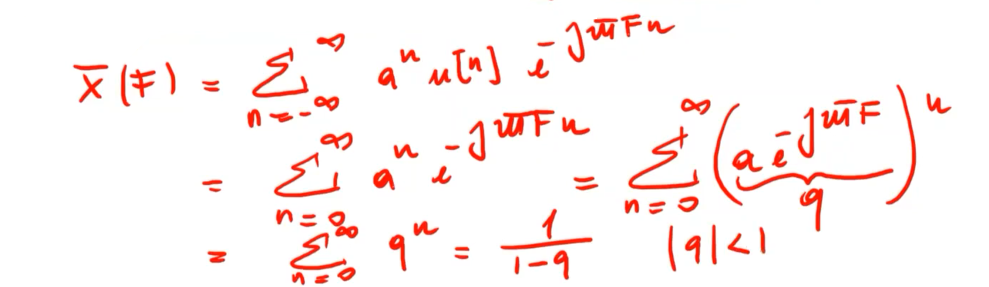 X̄(F) = ∑_{n=-∞}^{∞} a^n u[n] e^{-j2πFn}
= ∑_{n=0}^{∞} a^n e^{-j2πFn} = ∑_{n=0}^{∞} (a e^{-j2πF})^n
q
= ∑_{n=0}^{∞} q^n = 1/(1-q) |q|<1